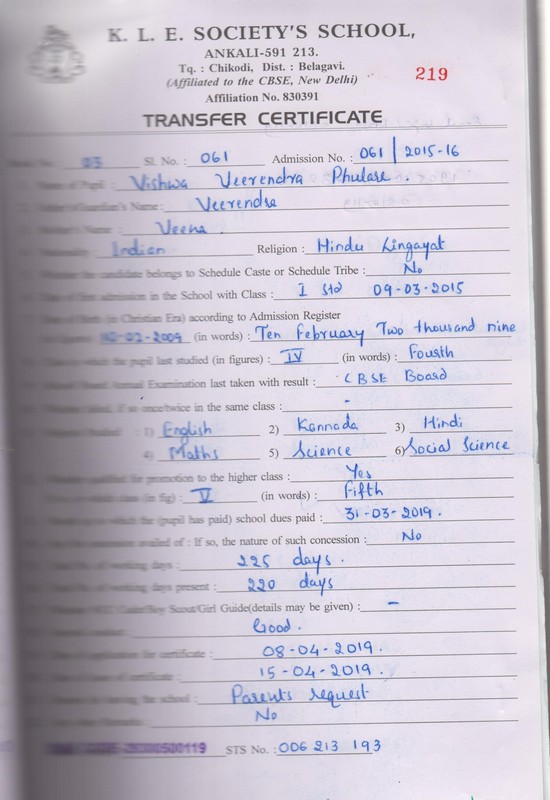 K. L. E. SOCIETY'S SCHOOL,
ANKALI-591 213.
Tq. : Chikodi, Dist. : Belagavi.
(Affiliated to the CBSE, New Delhi)
219
Affiliation No. 830391
TRANSFER CERTIFICATE
03 Sl. No. : 061 Admission No. : 061 / 2015-16
Name of Pupil : Vishwa Veerendra Phulare.
Guardian's Name : Veerendra
Name : Veena.
Indian Religion : Hindu Lingayat
the candidate belongs to Schedule Caste or Schedule Tribe : No
of first admission in the School with Class : I Std 09-03-2015
(in Christian Era) according to Admission Register
10-02-2009 (in words) : Ten February Two thousand nine
which the pupil last studied (in figures) : IV (in words) : Fourth
Annual Examination last taken with result : CBSE Board
if so once/twice in the same class : -
1) English 2) Kannada 3) Hindi
4) Maths 5) Science 6) Social Science
for promotion to the higher class : Yes
class (in fig) : V (in words) : Fifth
which the (pupil has paid) school dues paid : 31-03-2019.
availed of : If so, the nature of such concession : No
of working days : 225 days.
of working days present : 220 days
Scout/Girl Guide(details may be given) : -
Good.
for certificate : 08-04-2019.
of certificate : 15-04-2019.
leaving the school : Parents request
No
STS No. : 006 213 193